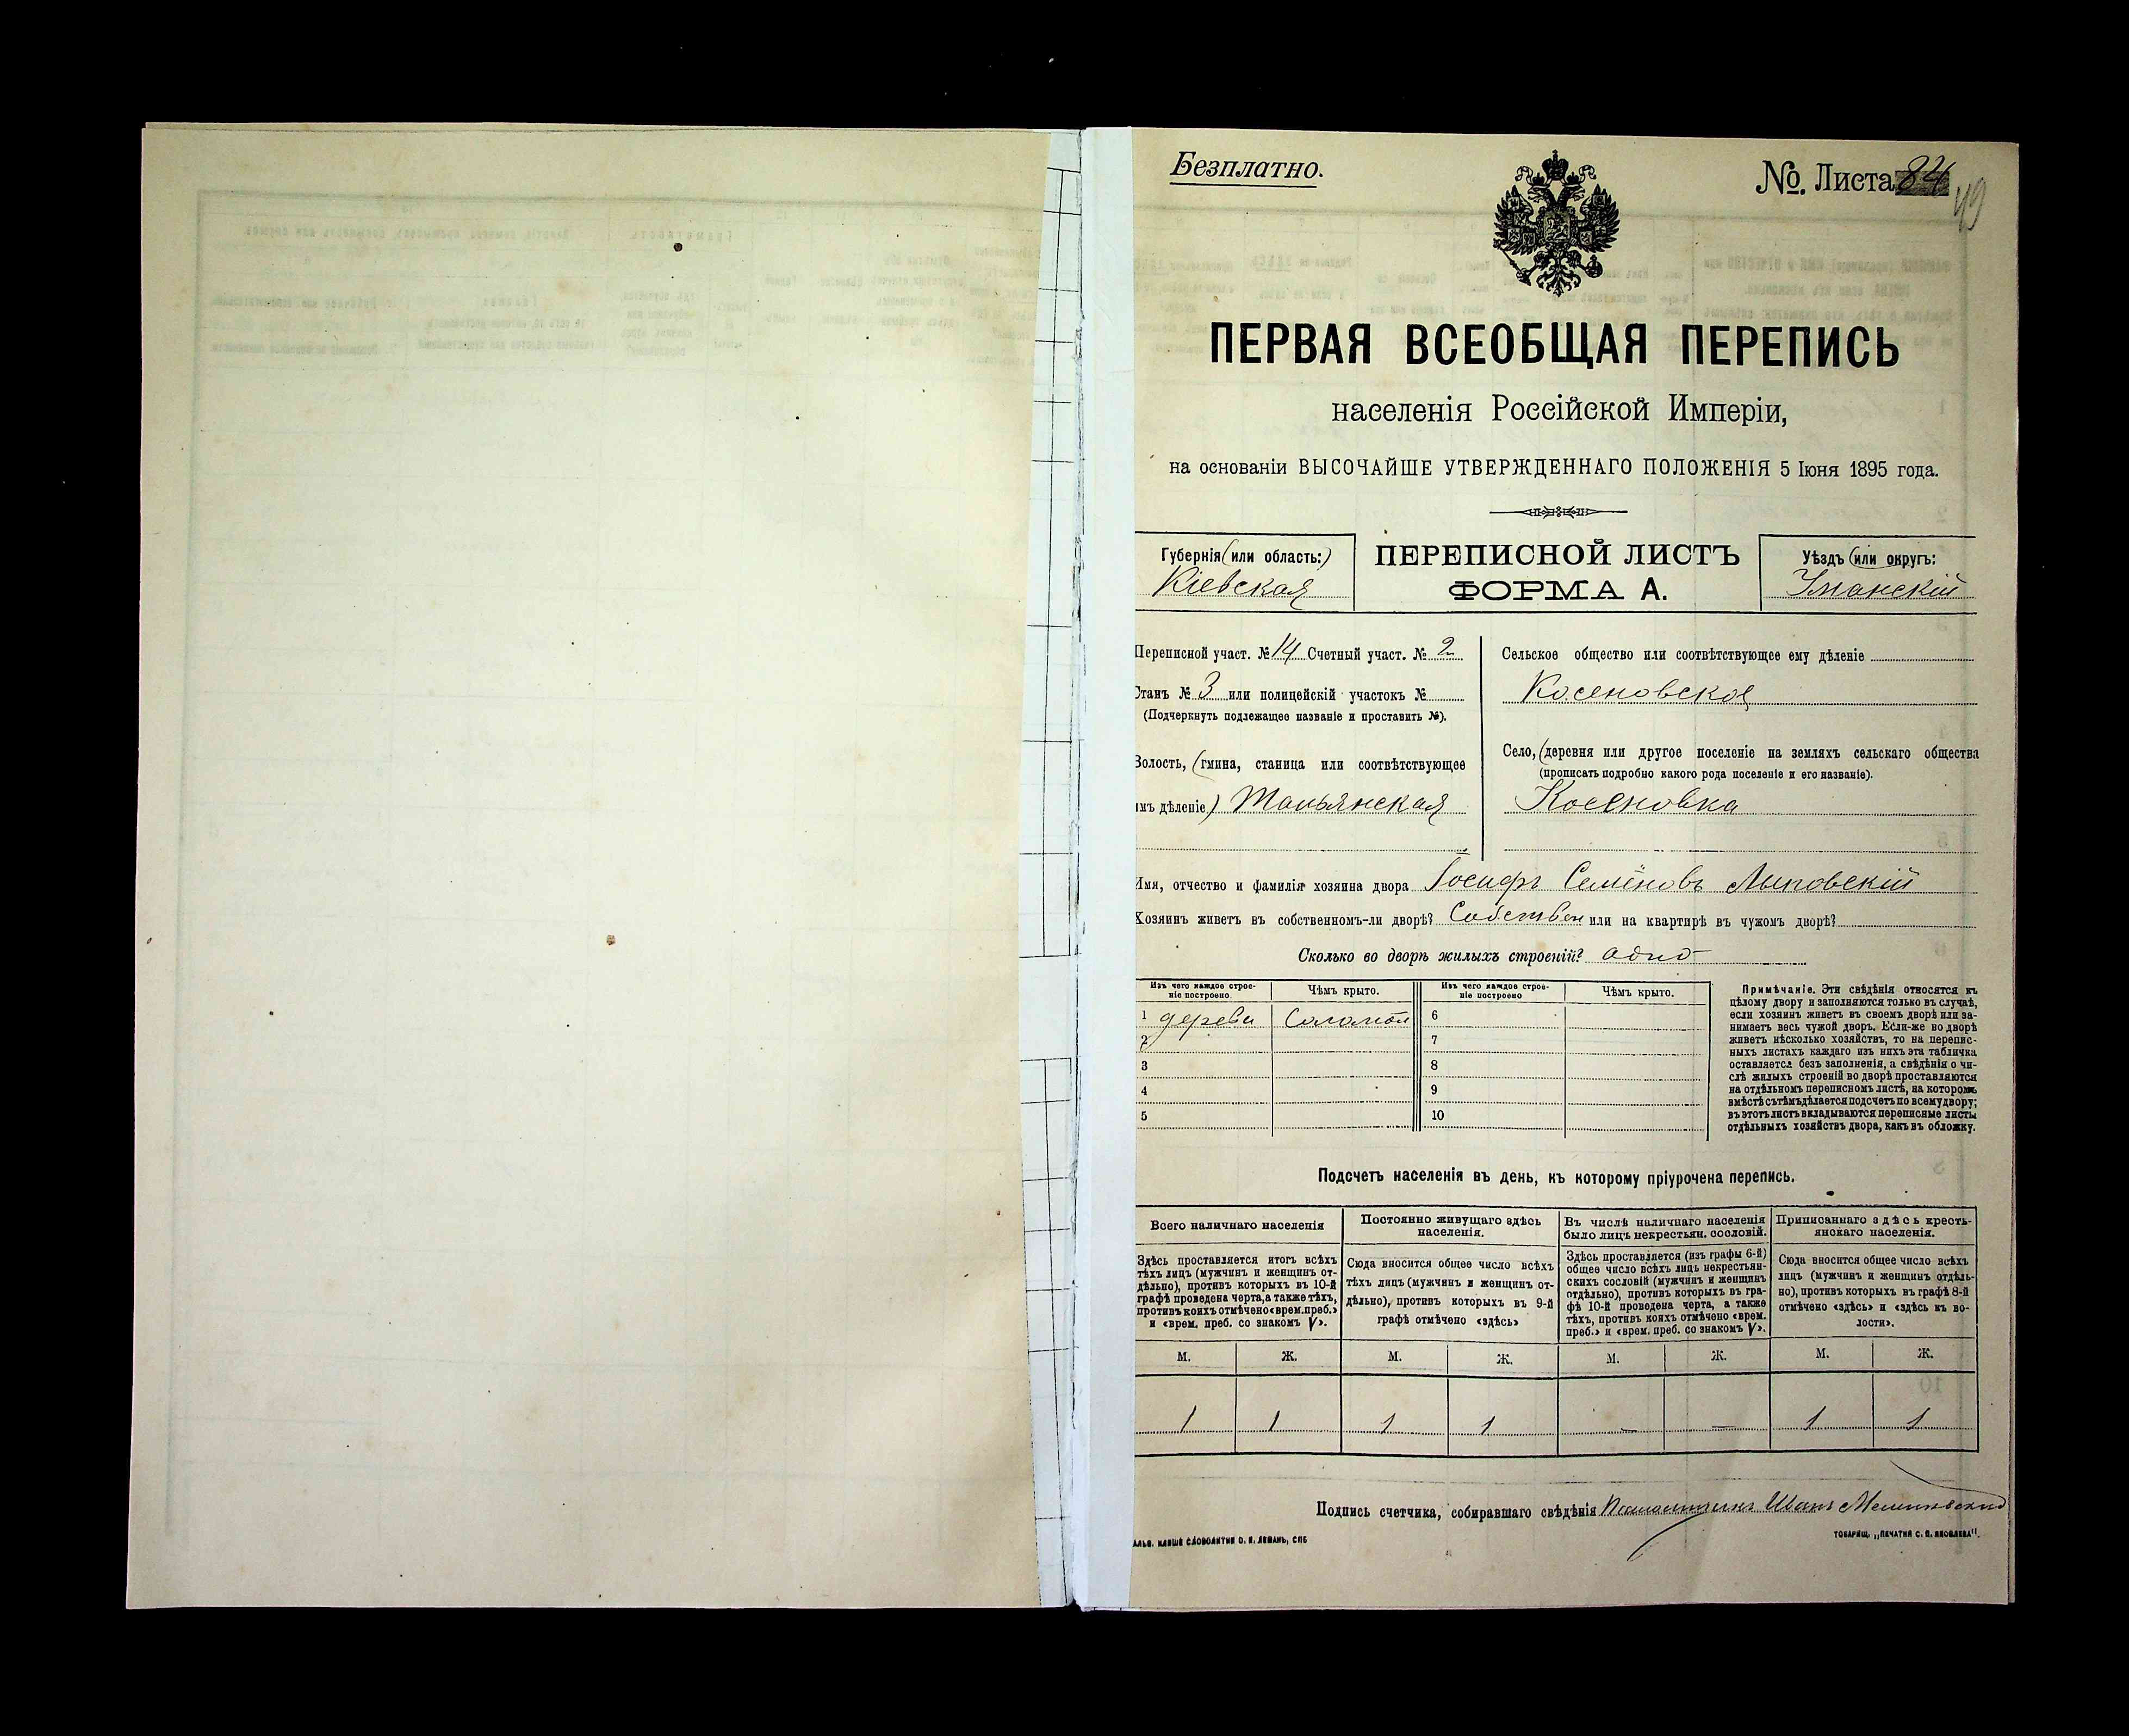 Безплатно.
№. Листа 84
49
ПЕРВАЯ ВСЕОБЩАЯ ПЕРЕПИСЬ
населенія Россійской Имперіи,
на основаніи ВЫСОЧАЙШЕ УТВЕРЖДЕННАГО ПОЛОЖЕНІЯ 5 Іюня 1895 года.
Губернія (или область:)
Кіевская
ПЕРЕПИСНОЙ ЛИСТЪ
ФОРМА А.
Уѣздъ (или округъ:
Уманскій
Переписной участ. № 14 Счетный участ. № 2
Станъ № 3 или полицейскій участокъ №
(Подчеркнуть подлежащее названіе и проставить №).
Волость, (гмина, станица или соотвѣтствующее
имъ дѣленіе) Тальянская
Сельское общество или соотвѣтствующее ему дѣленіе
Косеновское
Село, (деревня или другое поселеніе на земляхъ сельскаго общества
(прописать подробно какого рода поселеніе и его названіе).
Косеновка
Имя, отчество и фамилія хозяина двора Іосифъ Семёновъ Лыповскій
Хозяинъ живетъ въ собственномъ-ли дворѣ? Собствен или на квартирѣ въ чужомъ дворѣ?
Сколько во дворѣ жилыхъ строеній? одно
Изъ чего каждое строе-
ніе построено
Чѣмъ крыто.
Изъ чего каждое строе-
ніе построено
Чѣмъ крыто.
1 дерева Соломой 6
2 7
3 8
4 9
5 10
Примѣчаніе. Эти свѣдѣнія относятся къ
цѣлому двору и заполняются только въ случаѣ,
если хозяинъ живетъ въ своемъ дворѣ или за-
нимаетъ весь чужой дворъ. Если-же во дворѣ
живетъ нѣсколько хозяйствъ, то на перепис-
ныхъ листахъ каждаго изъ нихъ эта табличка
оставляется безъ заполненія, а свѣдѣнія о чи-
слѣ жилыхъ строеній во дворѣ проставляются
на отдѣльномъ переписномъ листѣ, на которомъ
вмѣстѣ съ тѣмъ дѣлается подсчетъ по всему двору;
въ этотъ листъ вкладываются переписные листы
отдѣльныхъ хозяйствъ двора, какъ въ обложку.
Подсчетъ населенія въ день, къ которому пріурочена перепись.
Всего наличнаго населенія
Здѣсь проставляется итогъ всѣхъ
тѣхъ лицъ (мужчинъ и женщинъ от-
дѣльно), противъ которыхъ въ 10-й
графѣ проведена черта, а также тѣхъ,
противъ коихъ отмѣчено «врем. преб.»
и «врем. преб. со знакомъ V».
Постоянно живущаго здѣсь
населенія.
Сюда вносится общее число всѣхъ
тѣхъ лицъ (мужчинъ и женщинъ от-
дѣльно), противъ которыхъ въ 9-й
графѣ отмѣчено «здѣсь»
Въ числѣ наличнаго населенія
было лицъ некрестьян. сословій.
Здѣсь проставляется (изъ графы 6-й)
общее число всѣхъ лицъ некрестьян-
скихъ сословій (мужчинъ и женщинъ
отдѣльно), противъ которыхъ въ гра-
фѣ 10-й проведена черта, а также
тѣхъ, противъ коихъ отмѣчено «врем.
преб.» и «врем. преб. со знакомъ V».
Приписаннаго здѣсь кресть-
янскаго населенія.
Сюда вносится общее число всѣхъ
лицъ (мужчинъ и женщинъ отдѣль-
но), противъ которыхъ въ графѣ 8-й
отмѣчено «здѣсь» и «здѣсь къ во-
лости».
М. Ж. М. Ж. М. Ж. М. Ж.
1 1 1 1 — — 1 1
Подпись счетчика, собиравшаго свѣдѣнія
ТОВАРИЩ. „ПЕЧАТНЯ С. П. ЯКОВЛЕВА".